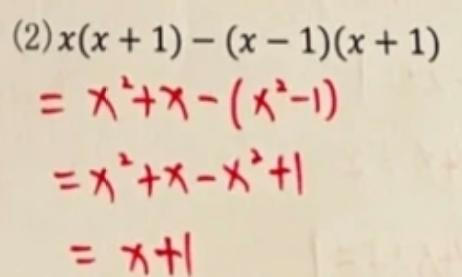 (2) x(x + 1) − (x − 1)(x + 1)
= x²+x−(x²−1)
= x²+x−x²+1
= x+1